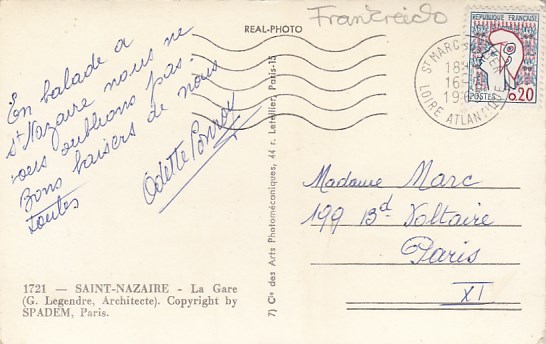 REAL-PHOTO
En balade a
St Nazaire nous ne
vous oublions pas.
Bons baisers de nous
toutes
Odette
1721 — SAINT-NAZAIRE - La Gare
(G. Legendre, Architecte). Copyright by
SPADEM, Paris.
7) Cie des Arts Photomécaniques, 44 r. Letellier, Paris-15
REPUBLIQUE FRANÇAISE
POSTES 0,20
ST MARC
18
16
19
LOIRE ATLANTIQUE
Madame Marc
199 Bd Voltaire
Paris
XI